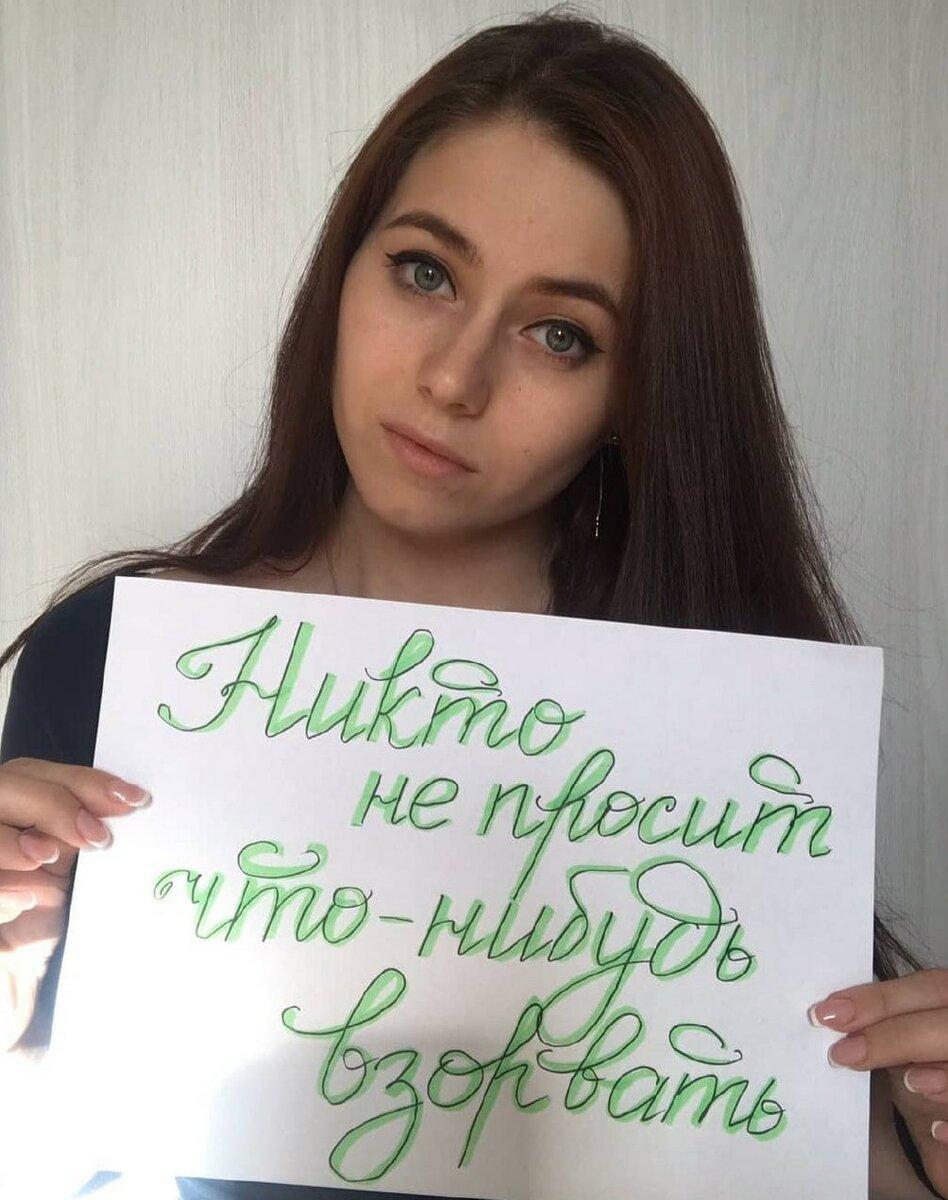 Никто
не просит
что-нибудь
взорвать